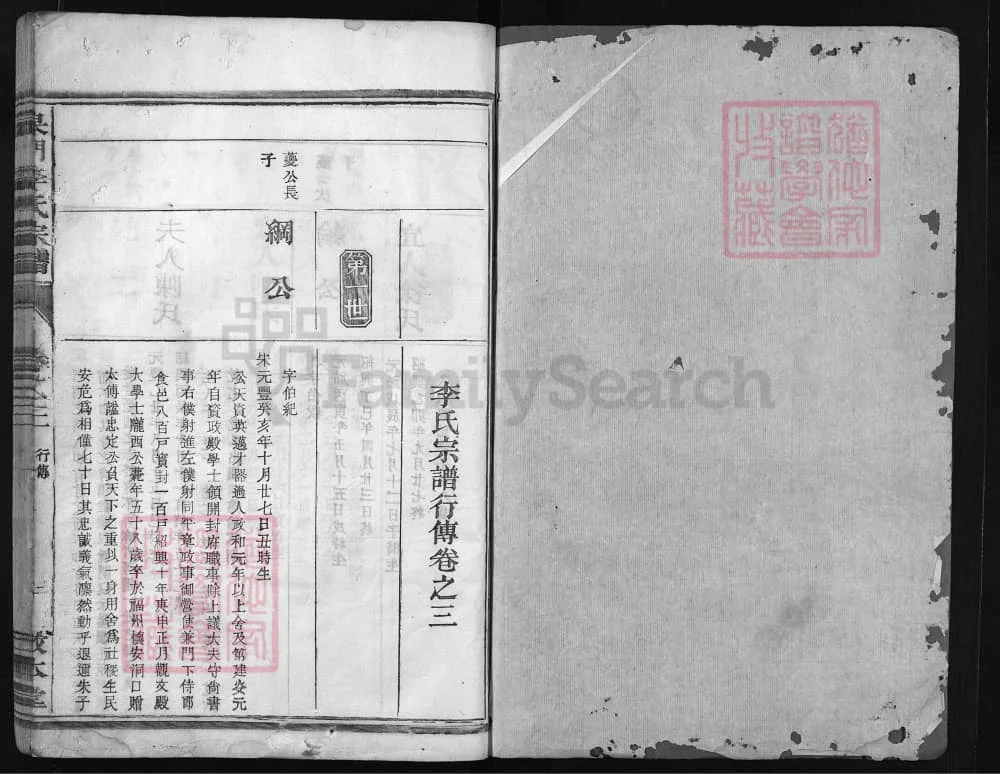 李氏宗譜行傳卷之三
第一世
夔公長
子
綱公
字伯紀
宋元豐癸亥年十月廿七日丑時生
公天資英邁才器過人政和元年以上舍及第建炎元
年自資政殿學士領開封府職事除上議大夫守尚書
事右僕射進左僕射同平章政事御營使兼門下侍郎
食邑八百戶實封一百戶紹興十年庚申正月觀文殿
大學士隴西公薨年五十八歲卒於福州懷安洞口贈
太傅謚忠定公負天下之重以一身用舍爲社稷生民
安危爲相僅七十日其忠誠義氣凜然動乎遐邇朱子
李氏宗譜
卷之三
行傳
FamilySearch
譜學會
收藏